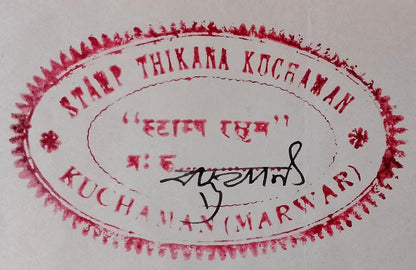 STAMP THIKANA KUCHAWAN
“स्टाम्प रसुम”
नः रु
KUCHAMAN (MARWAR)